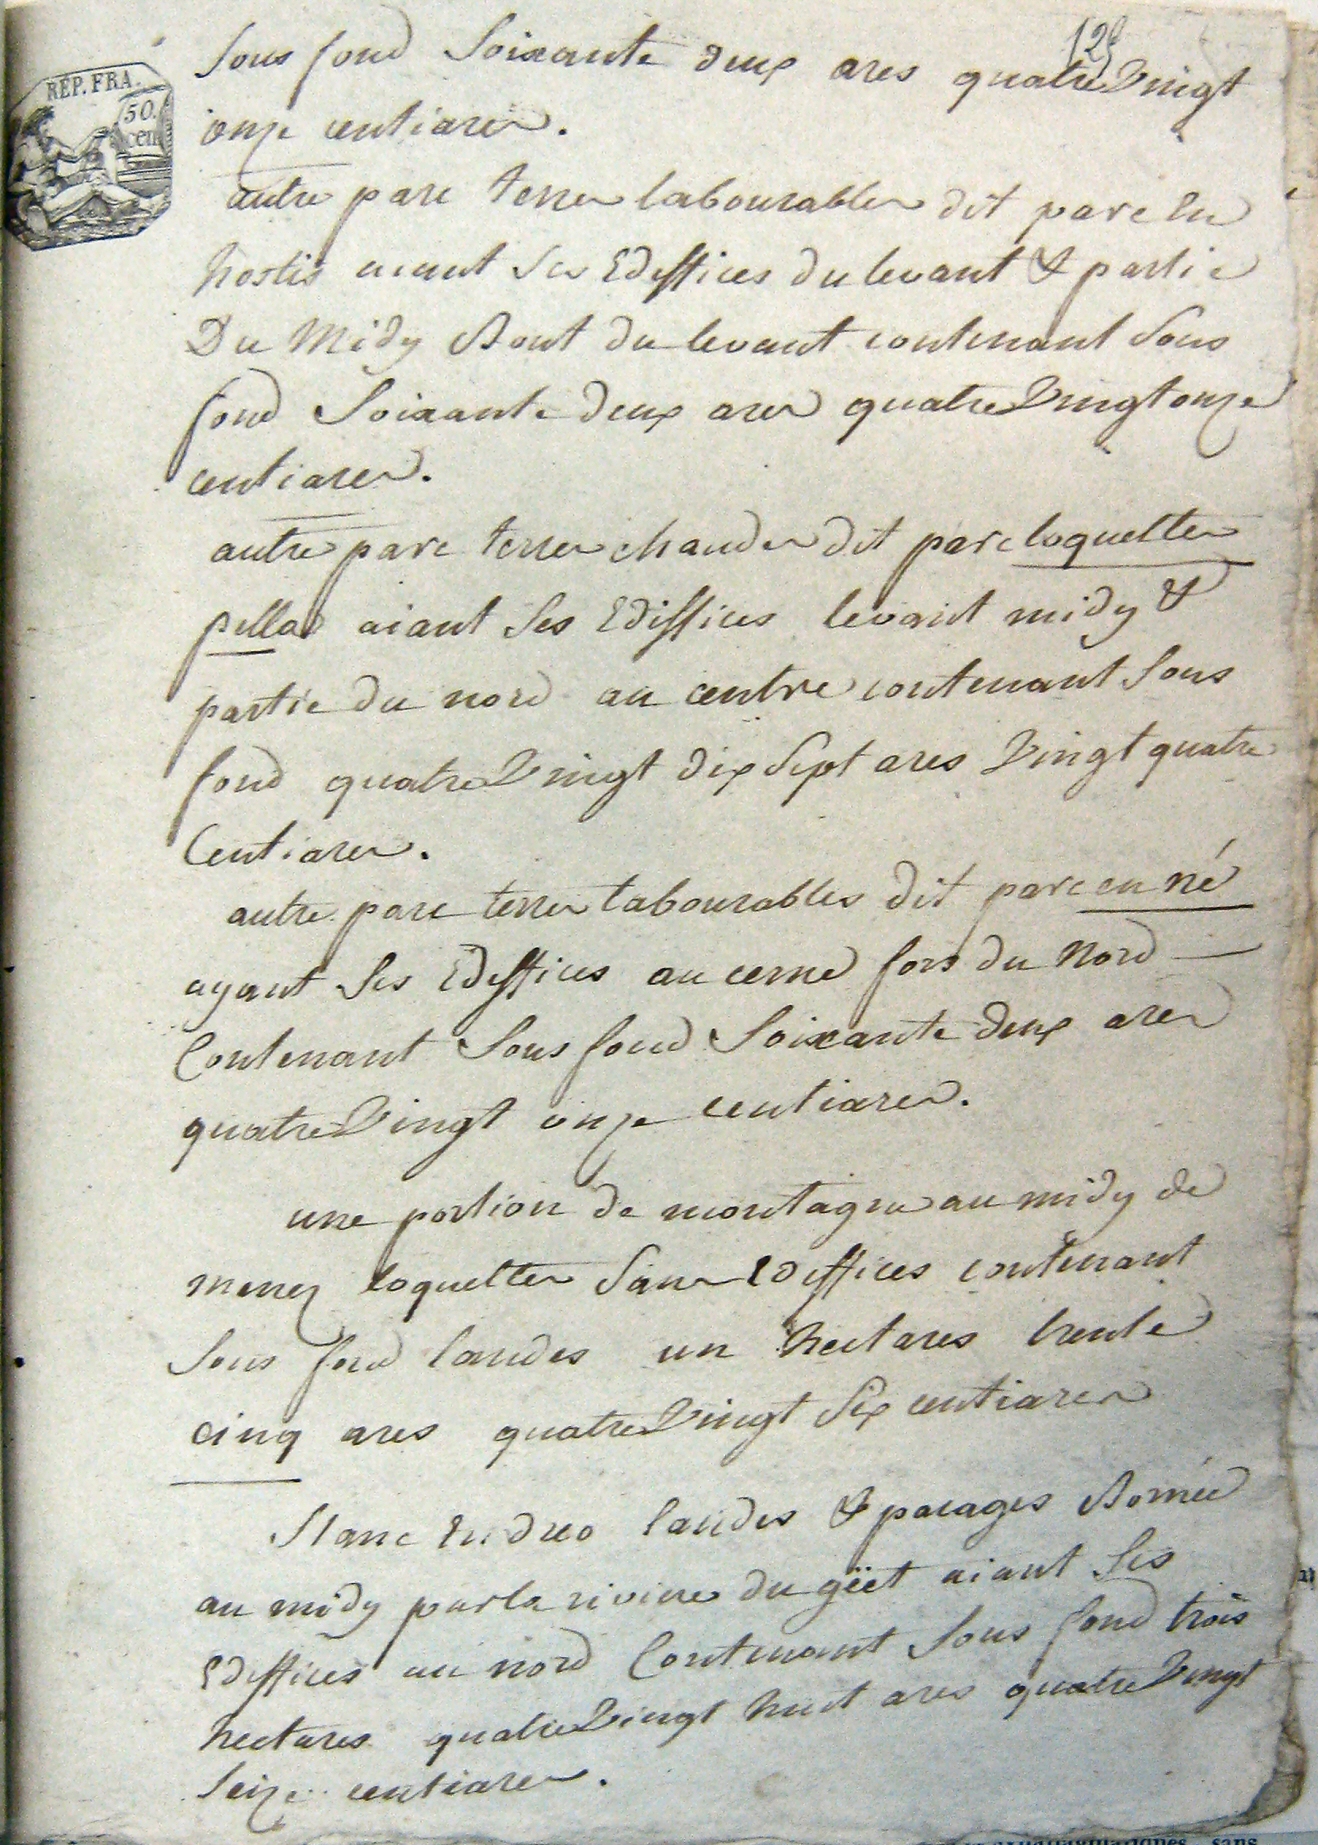 REP. FRA.
50.
cen
12e
Sous fond Soixante deux ares quatre Vingt
onze centiares.
autre parc terres labourables dit parc en
hostis aiant Ses Ediffices du levant & partie
Du Midy Bout du levant contenant Sous
fond Soixante deux ares quatre Vingt onze
centiares.
autre parc terres chaudes dit parc loquelter
pella aiant Ses Ediffices levant midy &
partie du nord au centre contenant Sous
fond quatre Vingt dix Sept ares Vingt quatre
Centiares.
autre parc terres labourables dit parc en né
ayant Ses Ediffices au cerne fors du Nord
Contenant Sous fond Soixante deux ares
quatre Vingt onze centiares.
une portion de montagne au midy de
menez loquelter Sans Ediffices contenant
Sous fond landes un hectares trente
cinq ares quatre Vingt Six centiares
Stanc En dréo landes & pacages Bornée
au midy par la riviere du gëet aiant Ses
Ediffices au nord Contenant Sous fond trois
hectares quatre Vingt huit ares quatre Vingt
Seize centiares.
sans